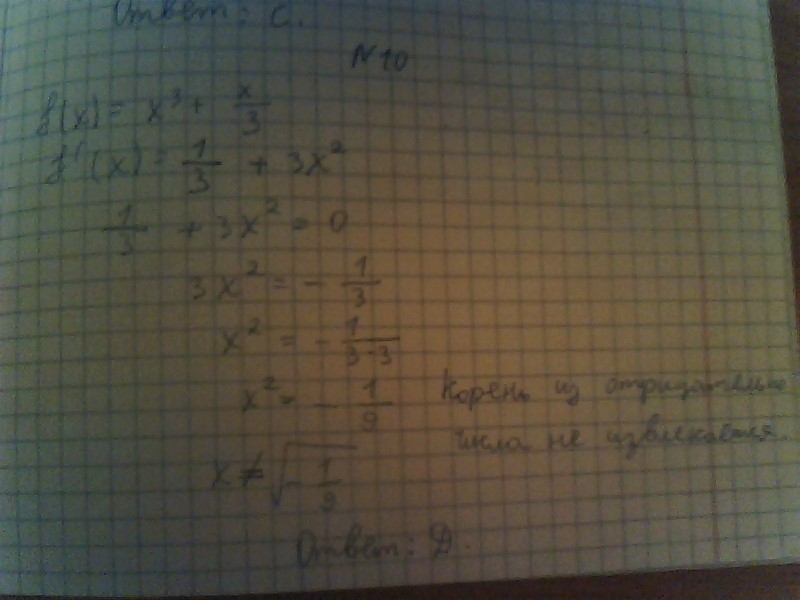 Ответ: C.
№10
f(x) = x³ + x/3
f'(x) = 1/3 + 3x²
1/3 + 3x² = 0
3x² = - 1/3
x² = - 1/(3·3)
x² = - 1/9 Корень из отрицательно
числа не извлекается.
x ≠ √(- 1/9)
Ответ: D.